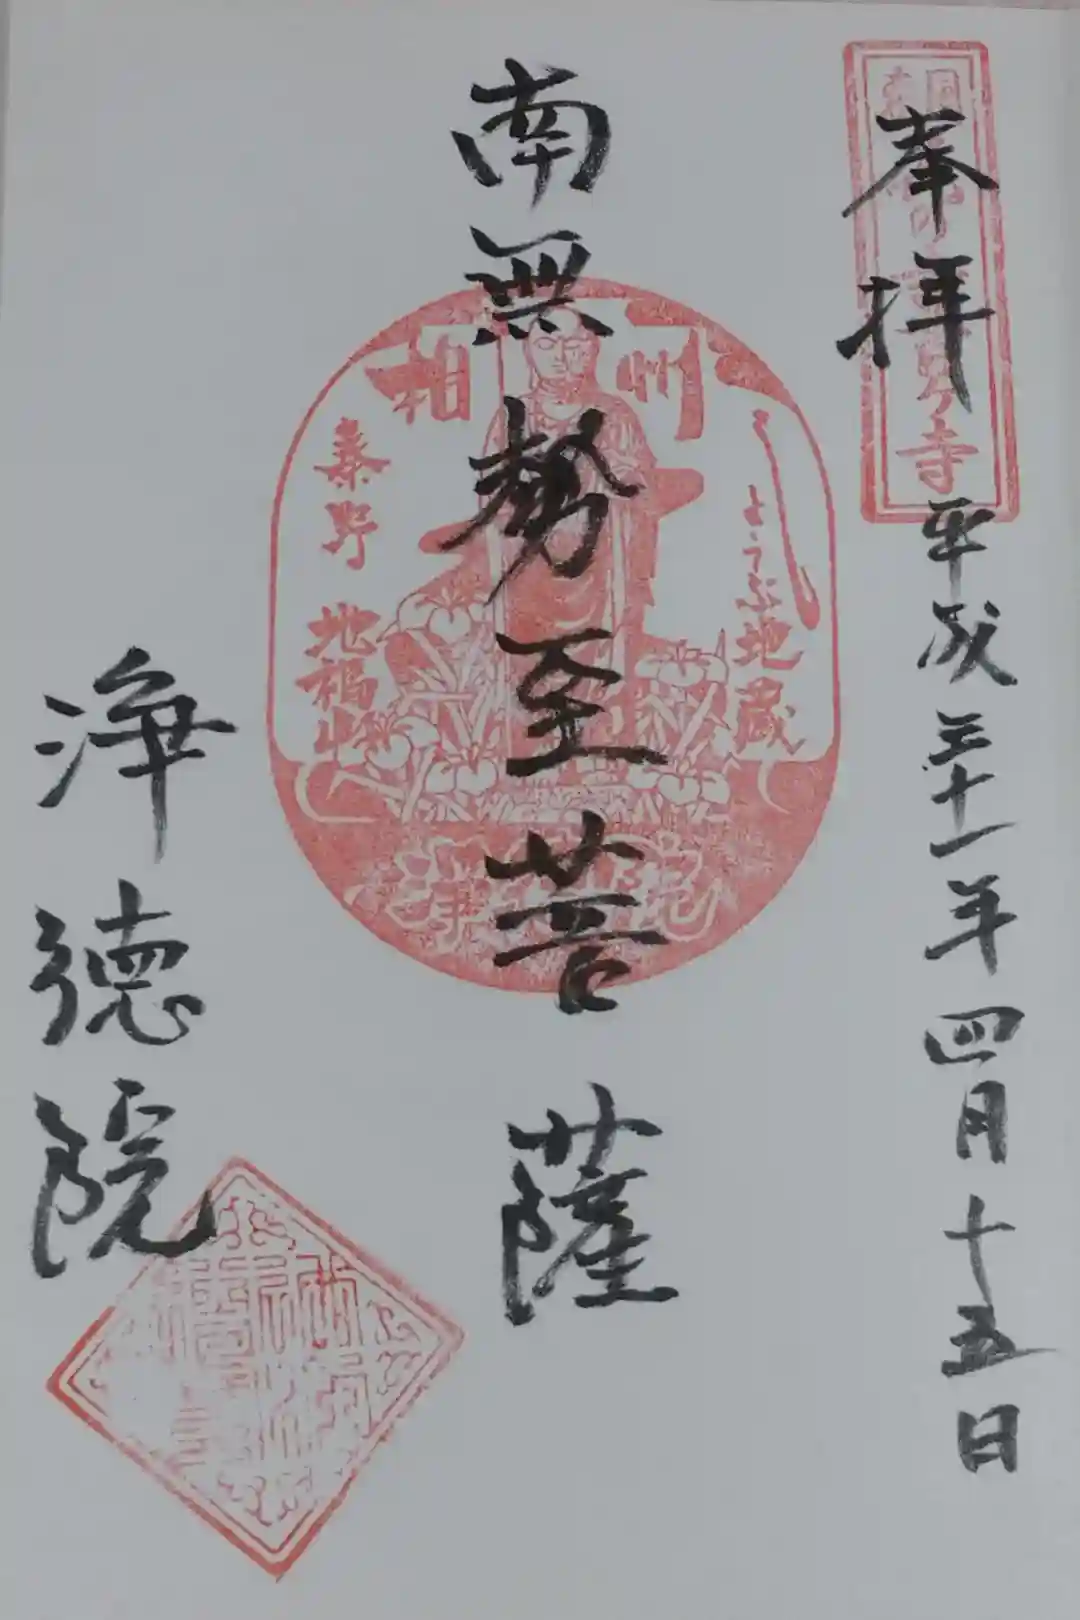 奉拝
平成三十一年四月十五日
南無勢至菩薩
相州
しょうぶ地蔵
秦野 地福山
浄徳院